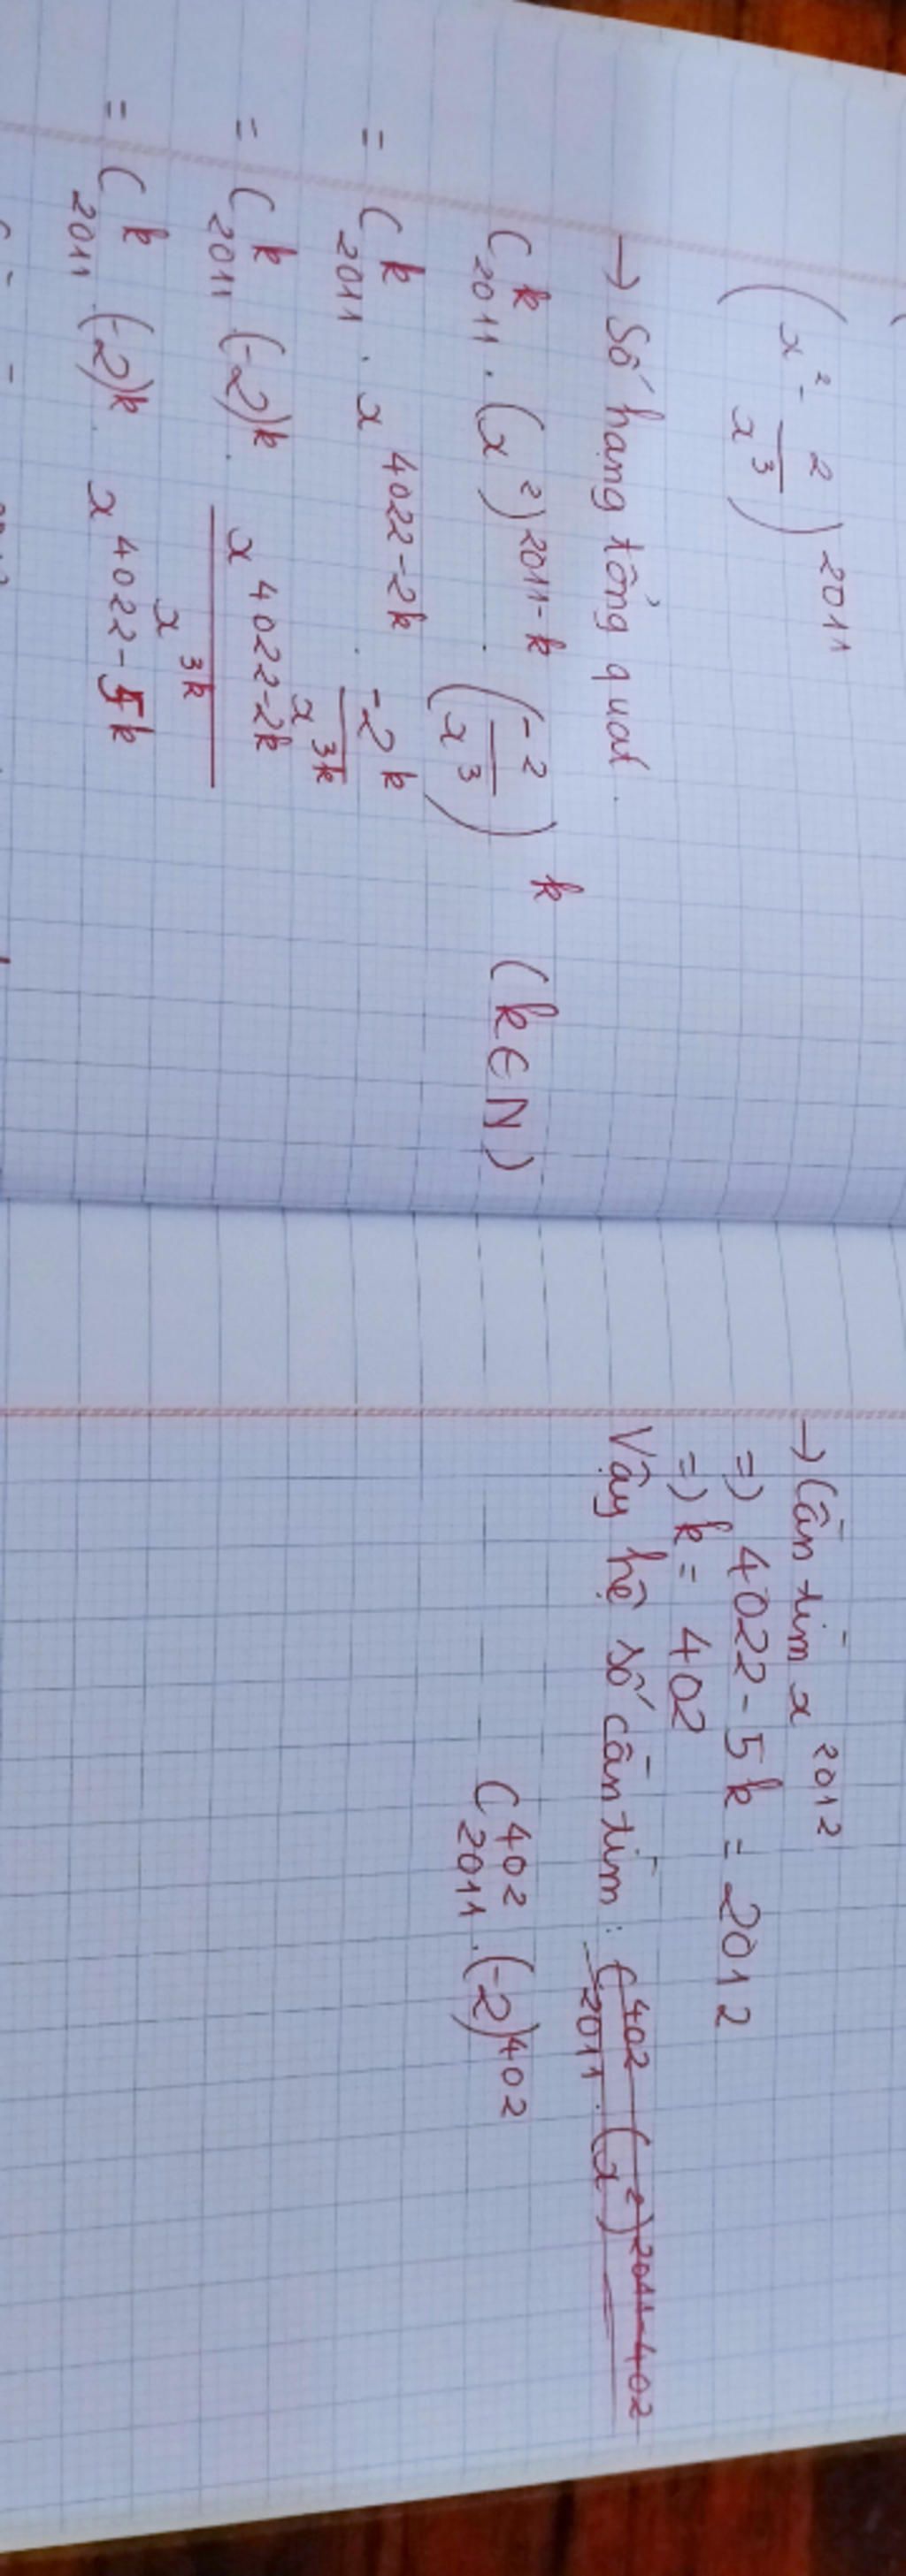 (x² - 2/x³)²⁰¹¹
→ Số hạng tổng quát.
C₂₀₁₁ᵏ . (x²)²⁰¹¹⁻ᵏ . (-2/x³)ᵏ (k∈N)
= C₂₀₁₁ᵏ . x⁴⁰²²⁻²ᵏ . -2ᵏ/x³ᵏ
= C₂₀₁₁ᵏ (-2)ᵏ . x⁴⁰²²⁻²ᵏ/x³ᵏ
= C₂₀₁₁ᵏ (-2)ᵏ . x⁴⁰²²⁻⁵ᵏ
→ Cần tìm x²⁰¹²
=) 4022 - 5k = 2012
=) k = 402
Vậy hệ số cần tìm : C₂₀₁₁⁴⁰² . (x²)²⁰¹¹⁻⁴⁰²
C₂₀₁₁⁴⁰² . (-2)⁴⁰²